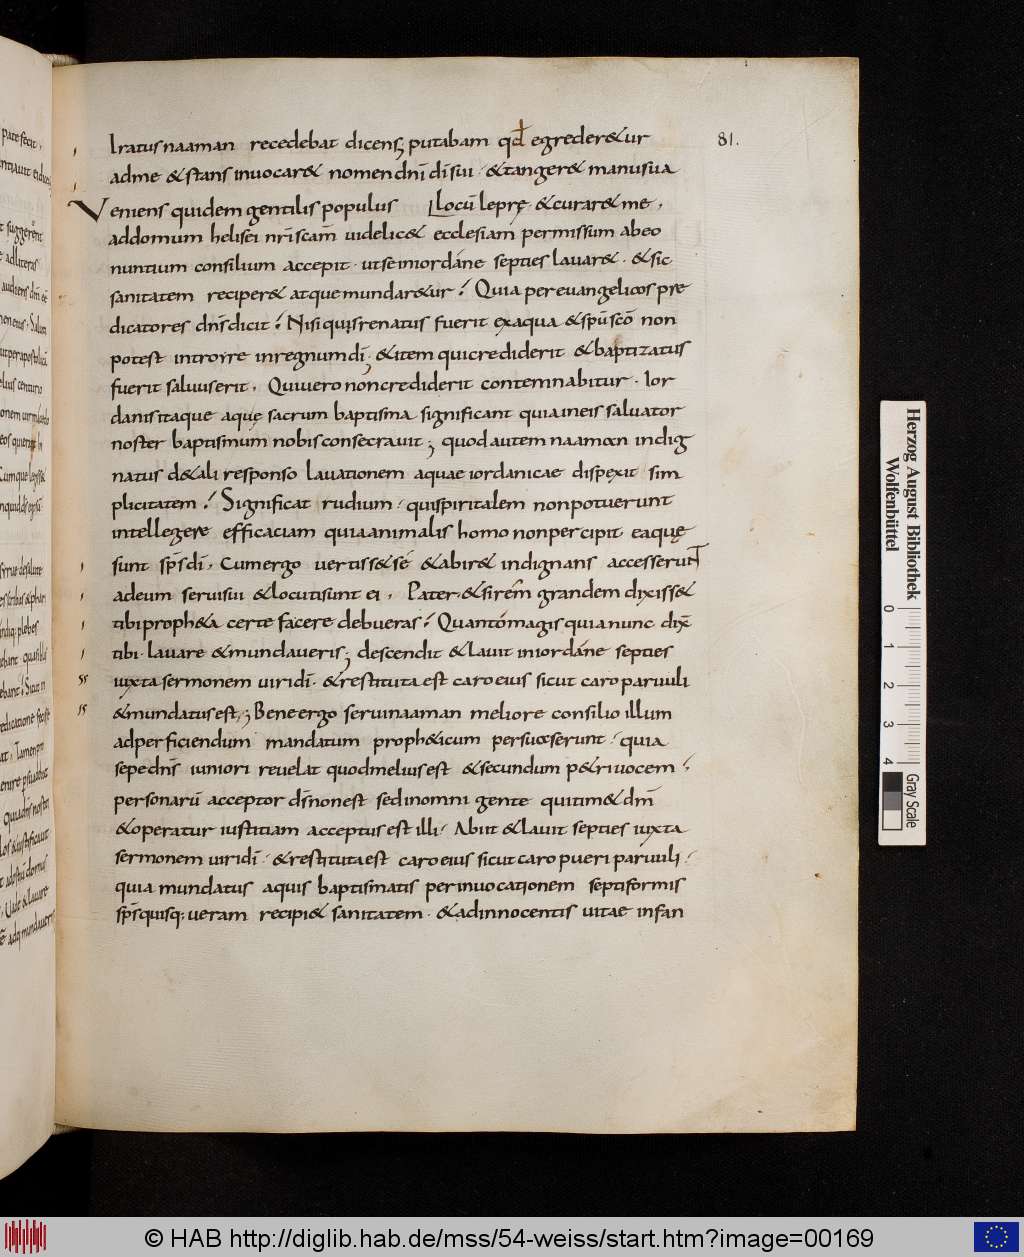 81.
Iratus naaman recedebat dicens; putabam qđ egreder&ur
adme &stans inuocar& nomen dnī dī sui · &tanger& manusua
Veniens quidem gentilis populus Llocū leprę &curar& me,
addomum helisei nr̄i scam̄ uidelic& ecclesiam permissum abeo
nuntium consilium accepit · utseiniordáne septies lauar& · &sic
sanitatem reciper& atque mundar&ur! Quia per euangelicos prę
dicatores dn̄s dicit! Nisi quis renatus fuerit exaqua &spū scō non
potest introire inregnum dī; &item qui crediderit &baptizatus
fuerit saluus erit, Qui uero non crediderit contemnabitur · Ior
danis itaque aquę sacrum baptisma significant quia ineis saluator
noster baptismum nobis consecrauit; quod autem naaman indig
natus d&ali responso lauationem aquae iordanicae dispexit sim
plicitatem! Significat rudium · qui spiritalem non potuerunt
intellegere efficaciam quia animalis homo non percipit eaquę
sunt sp̄s dī, Cum ergo uertiss&se &abir& indignans accesserunt
adeum serui sui &locuti sunt ei, Pater, &sirem̄ grandem dixiss&
tibi proph&a certe facere debueras! Quantó magis quia nunc dix̄
tibi · lauare &mundaueris; descendit &lauit iniordáne septies
iuxta sermonem uiri dī · &restituta est caro eius sicut caro paruuli
&mundatus est,; Bene ergo serui naaman meliore consilio illum
ad perficiendum mandatum proph&icum persuaserunt · quia
sepe dn̄s iuniori reuelat quod melius est &secundum p&ri uocem ·
personarū acceptor ds̄ non est sed in omni gente qui tim& dm̄
&operatur iustitiam acceptus est illi · Abiit &lauit septies iuxta
sermonem uiri dī · &restituta est caro eius sicut caro pueri paruuli ·
quia mundatus aquis baptismatis per inuocationem septiformis
sp̄s quisq; ueram recipi& sanitatem · &ad innocentis uitae infan
Herzog August Bibliothek
Wolfenbüttel
0 1 2 3 4
Gray Scale
© HAB http://diglib.hab.de/mss/54-weiss/start.htm?image=00169